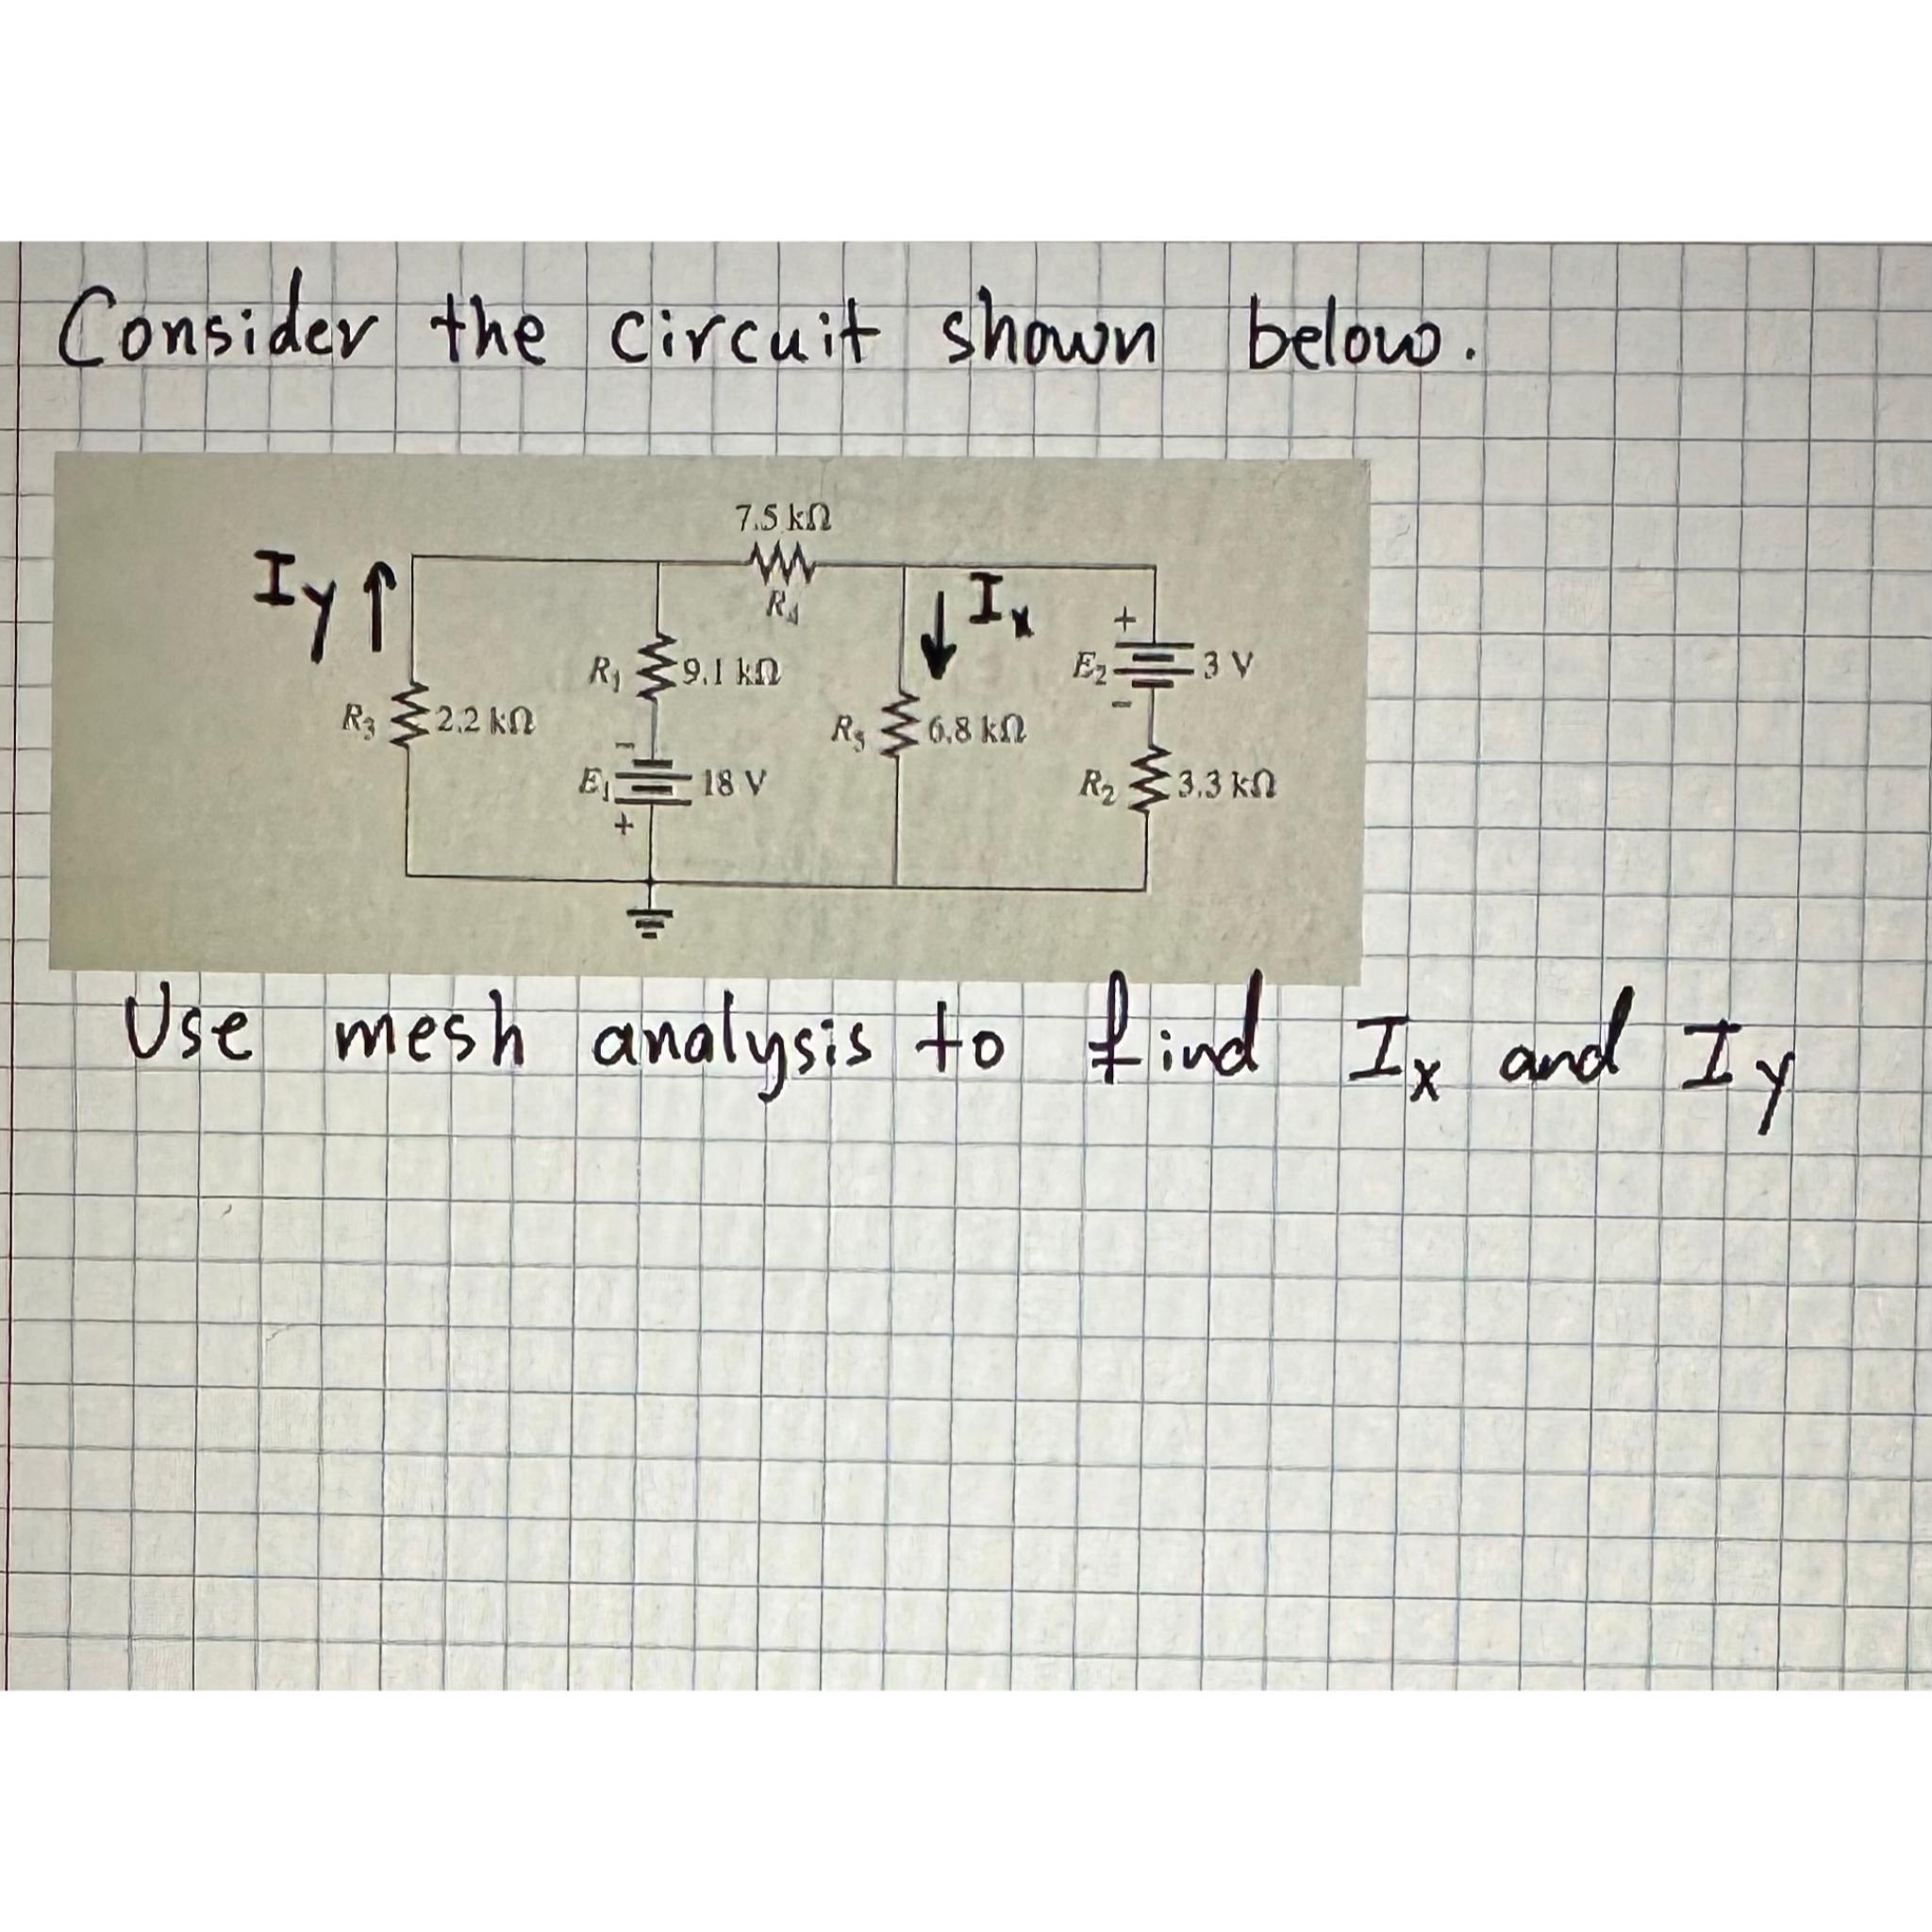 Consider the circuit shown below.
7.5 kΩ
Iy ↑
R4
↓ Ix
+
R1 9.1 kΩ
E2 3 V
-
R3 2.2 kΩ
R5 6.8 kΩ
-
E1 18 V
R2 3.3 kΩ
+
Use mesh analysis to find Ix and Iy